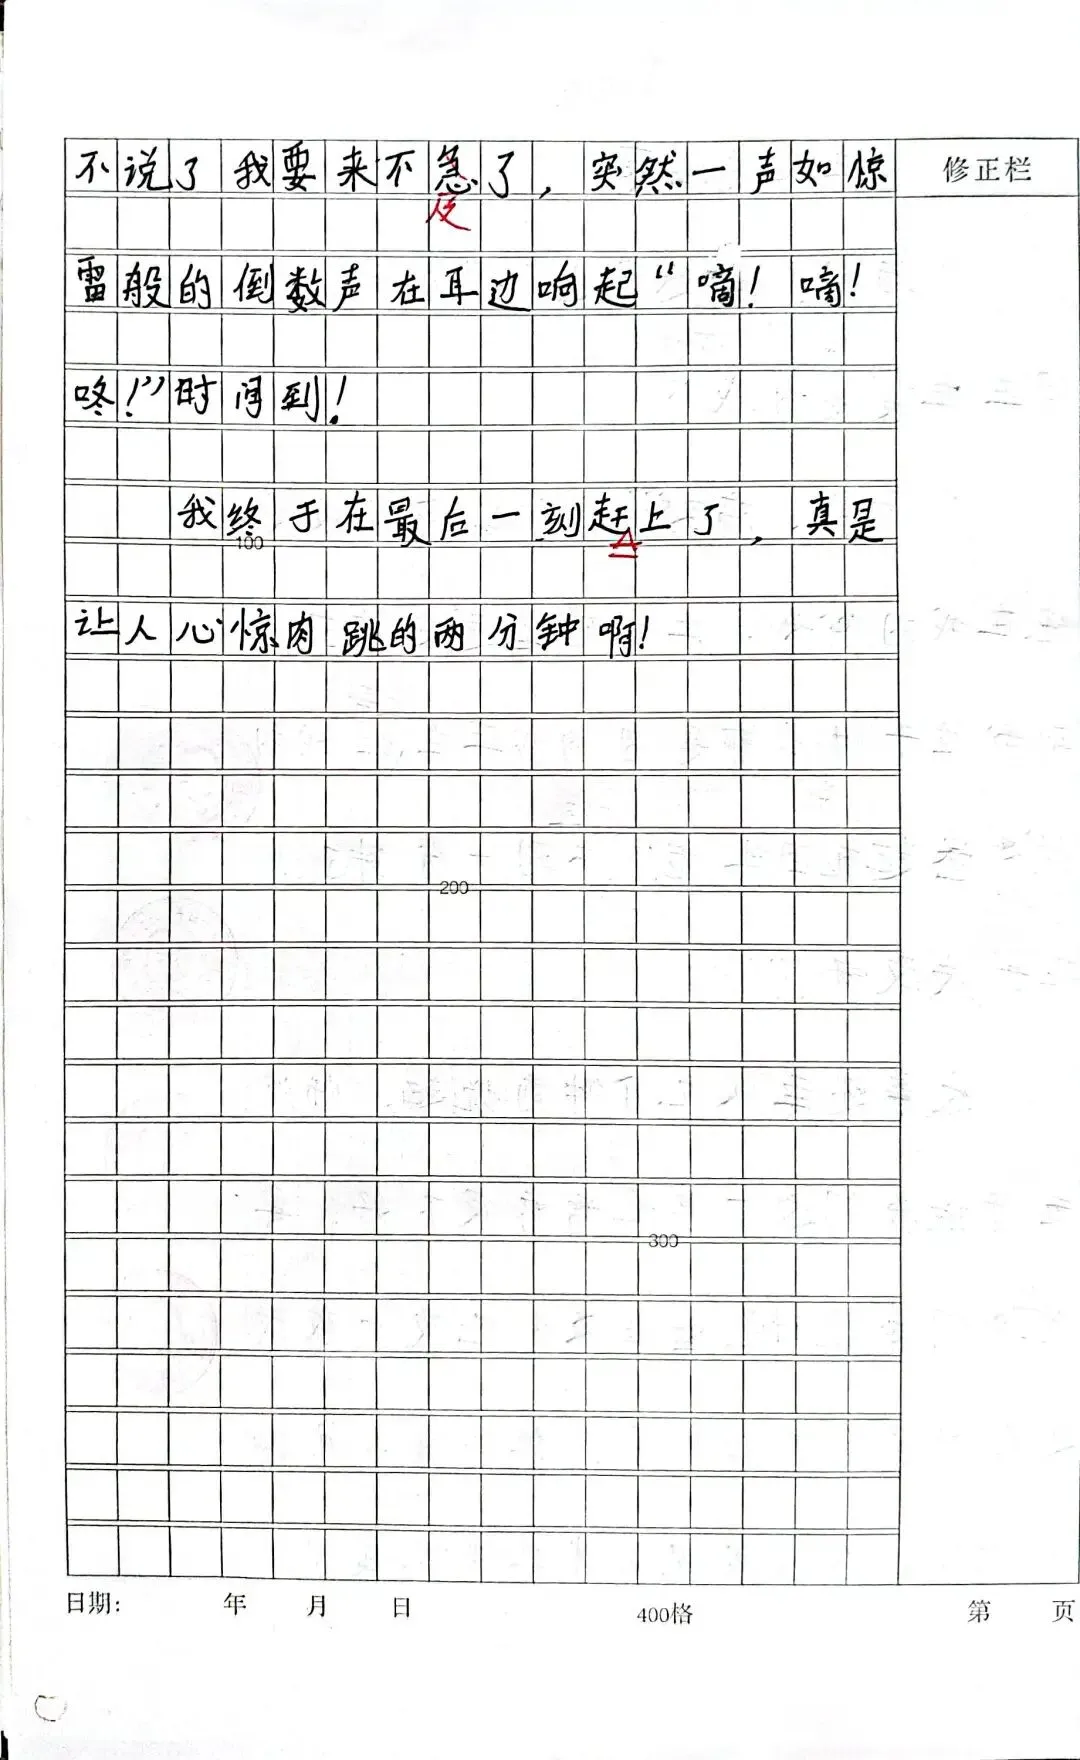 不说了我要来不急了，突然一声如惊
修正栏
及
雷般的倒数声在耳边响起“嘀！嘀！
咚！”时间到！
我终于在最后一刻赶上了，真是
100
让人心惊肉跳的两分钟啊！
200
300
日期： 年 月 日 400格 第 页